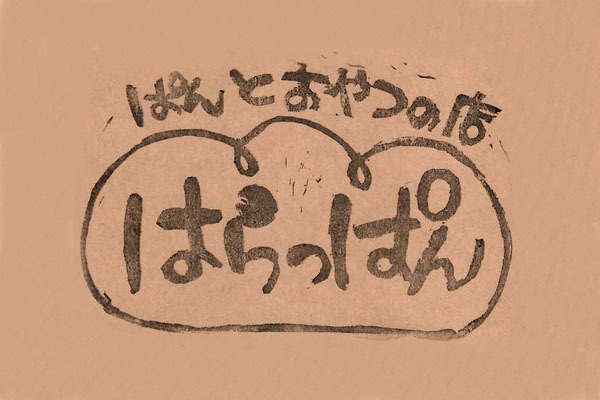 ぱんとおやつの店
ぱらっぱん